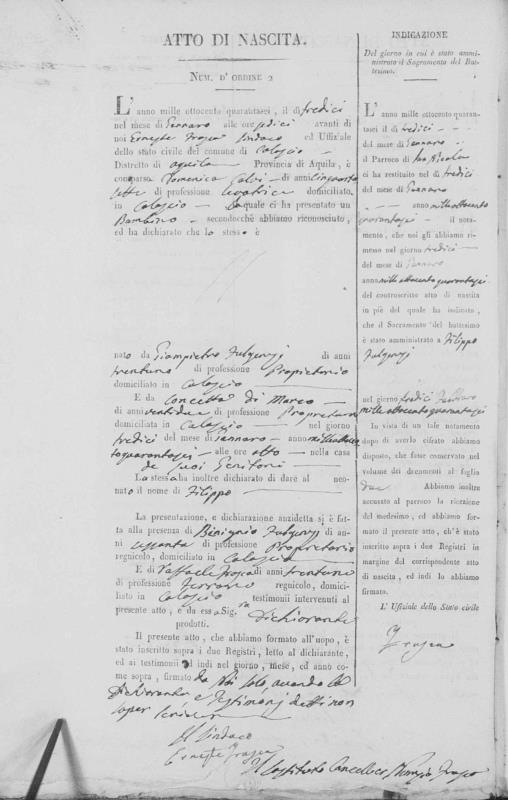 ATTO DI NASCITA.
NUM. D' ORDINE 2
L' anno mille ottocento quarantasei, il dì tredici
nel mese di Gennaro alle ore sedici avanti di
noi Ernesto Frasca Sindaco ed Uffiziale
dello stato civile del comune di Calascio
Distretto di Aquila Provincia di Aquila, è
comparsa Domenica di anni cinquanta
sette di professione levatrice domiciliata
in Calascio la quale ci ha presentato un
Bambino secondocchè abbiamo riconosciuto,
ed ha dichiarato che lo stesso è
nato da Giampietro Fulgenzj di anni
trentuno di professione Proprietario
domiciliato in Calascio
E da Concetta di Marco
di anni ventidue di professione Proprietaria
domiciliata in Calascio nel giorno
tredici del mese di Gennaro anno mille otto cen
to quarantasei alle ore otto nella casa
de' suoi Genitori
La stessa ha inoltre dichiarato di dare al neo-
nato il nome di Filippo
La presentazione, e dichiarazione anzidetta si è fat-
ta alla presenza di Benignio Fulgenzj di an-
ni sessanta di professione Proprietario
regnicolo, domiciliato in Calascio
E di Raffaele Frasca di anni trentuno
di professione Ferraro regnicolo, domici-
liato in Calascio testimonii intervenuti al
presente atto, e da essa Sig.ra dichiarante
prodotti.
Il presente atto, che abbiamo formato all'uopo, è
stato inscritto sopra i due Registri, letto al dichiarante,
ed ai testimonii ed indi nel giorno, mese, ed anno co-
me sopra, firmato da Noi solo, avendo la
dichiarante, e testimonj detto non
saper scrivere
Il Sindaco
Ernesto Frasca
Il Sostituto Cancelliere Frasca
INDICAZIONE
Del giorno in cui è stato ammi-
nistrato il Sacramento del Bat-
tesimo.
L' anno mille ottocento quaran-
tasei il dì tredici
del mese di Gennaro
il Parroco di San Nicola
ci ha restituito nel dì tredici
del mese di Gennaro
anno mille ottocento
quarantasei il nota-
mento, che noi gli abbiamo ri-
messo nel giorno tredici
del mese di Gennaro
anno mille ottocento quarantasei
del controscritto atto di nascita
in piè del quale ha indicato,
che il Sacramento del battesimo
è stato amministrato a Filippo
Fulgenzj
nel giorno tredici
mille ottocento quarantasei
In vista di un tale notamento
dopo di averlo cifrato abbiamo
disposto, che fosse conservato nel
volume dei documenti al foglio
due Abbiamo inoltre
accusato al parroco la ricezione
del medesimo, ed abbiamo for-
mato il presente atto, ch'è stato
inscritto sopra i due Registri in
margine del corrispondente atto
di nascita, ed indi lo abbiamo
firmato.
L' Ufiziale dello Stato civile
Frasca